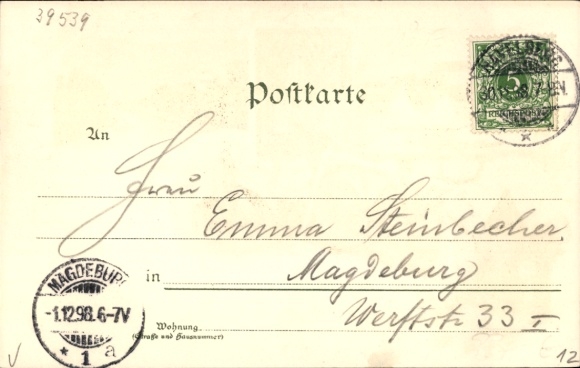 39539
5
Postkarte
An
Frau
Emma Steinbecher
in Magdeburg
Werftstr 33 I
Wohnung
(Straße und Hausnummer)
MAGDEBURG
-1.12.98.6-7V
* 1 a
12